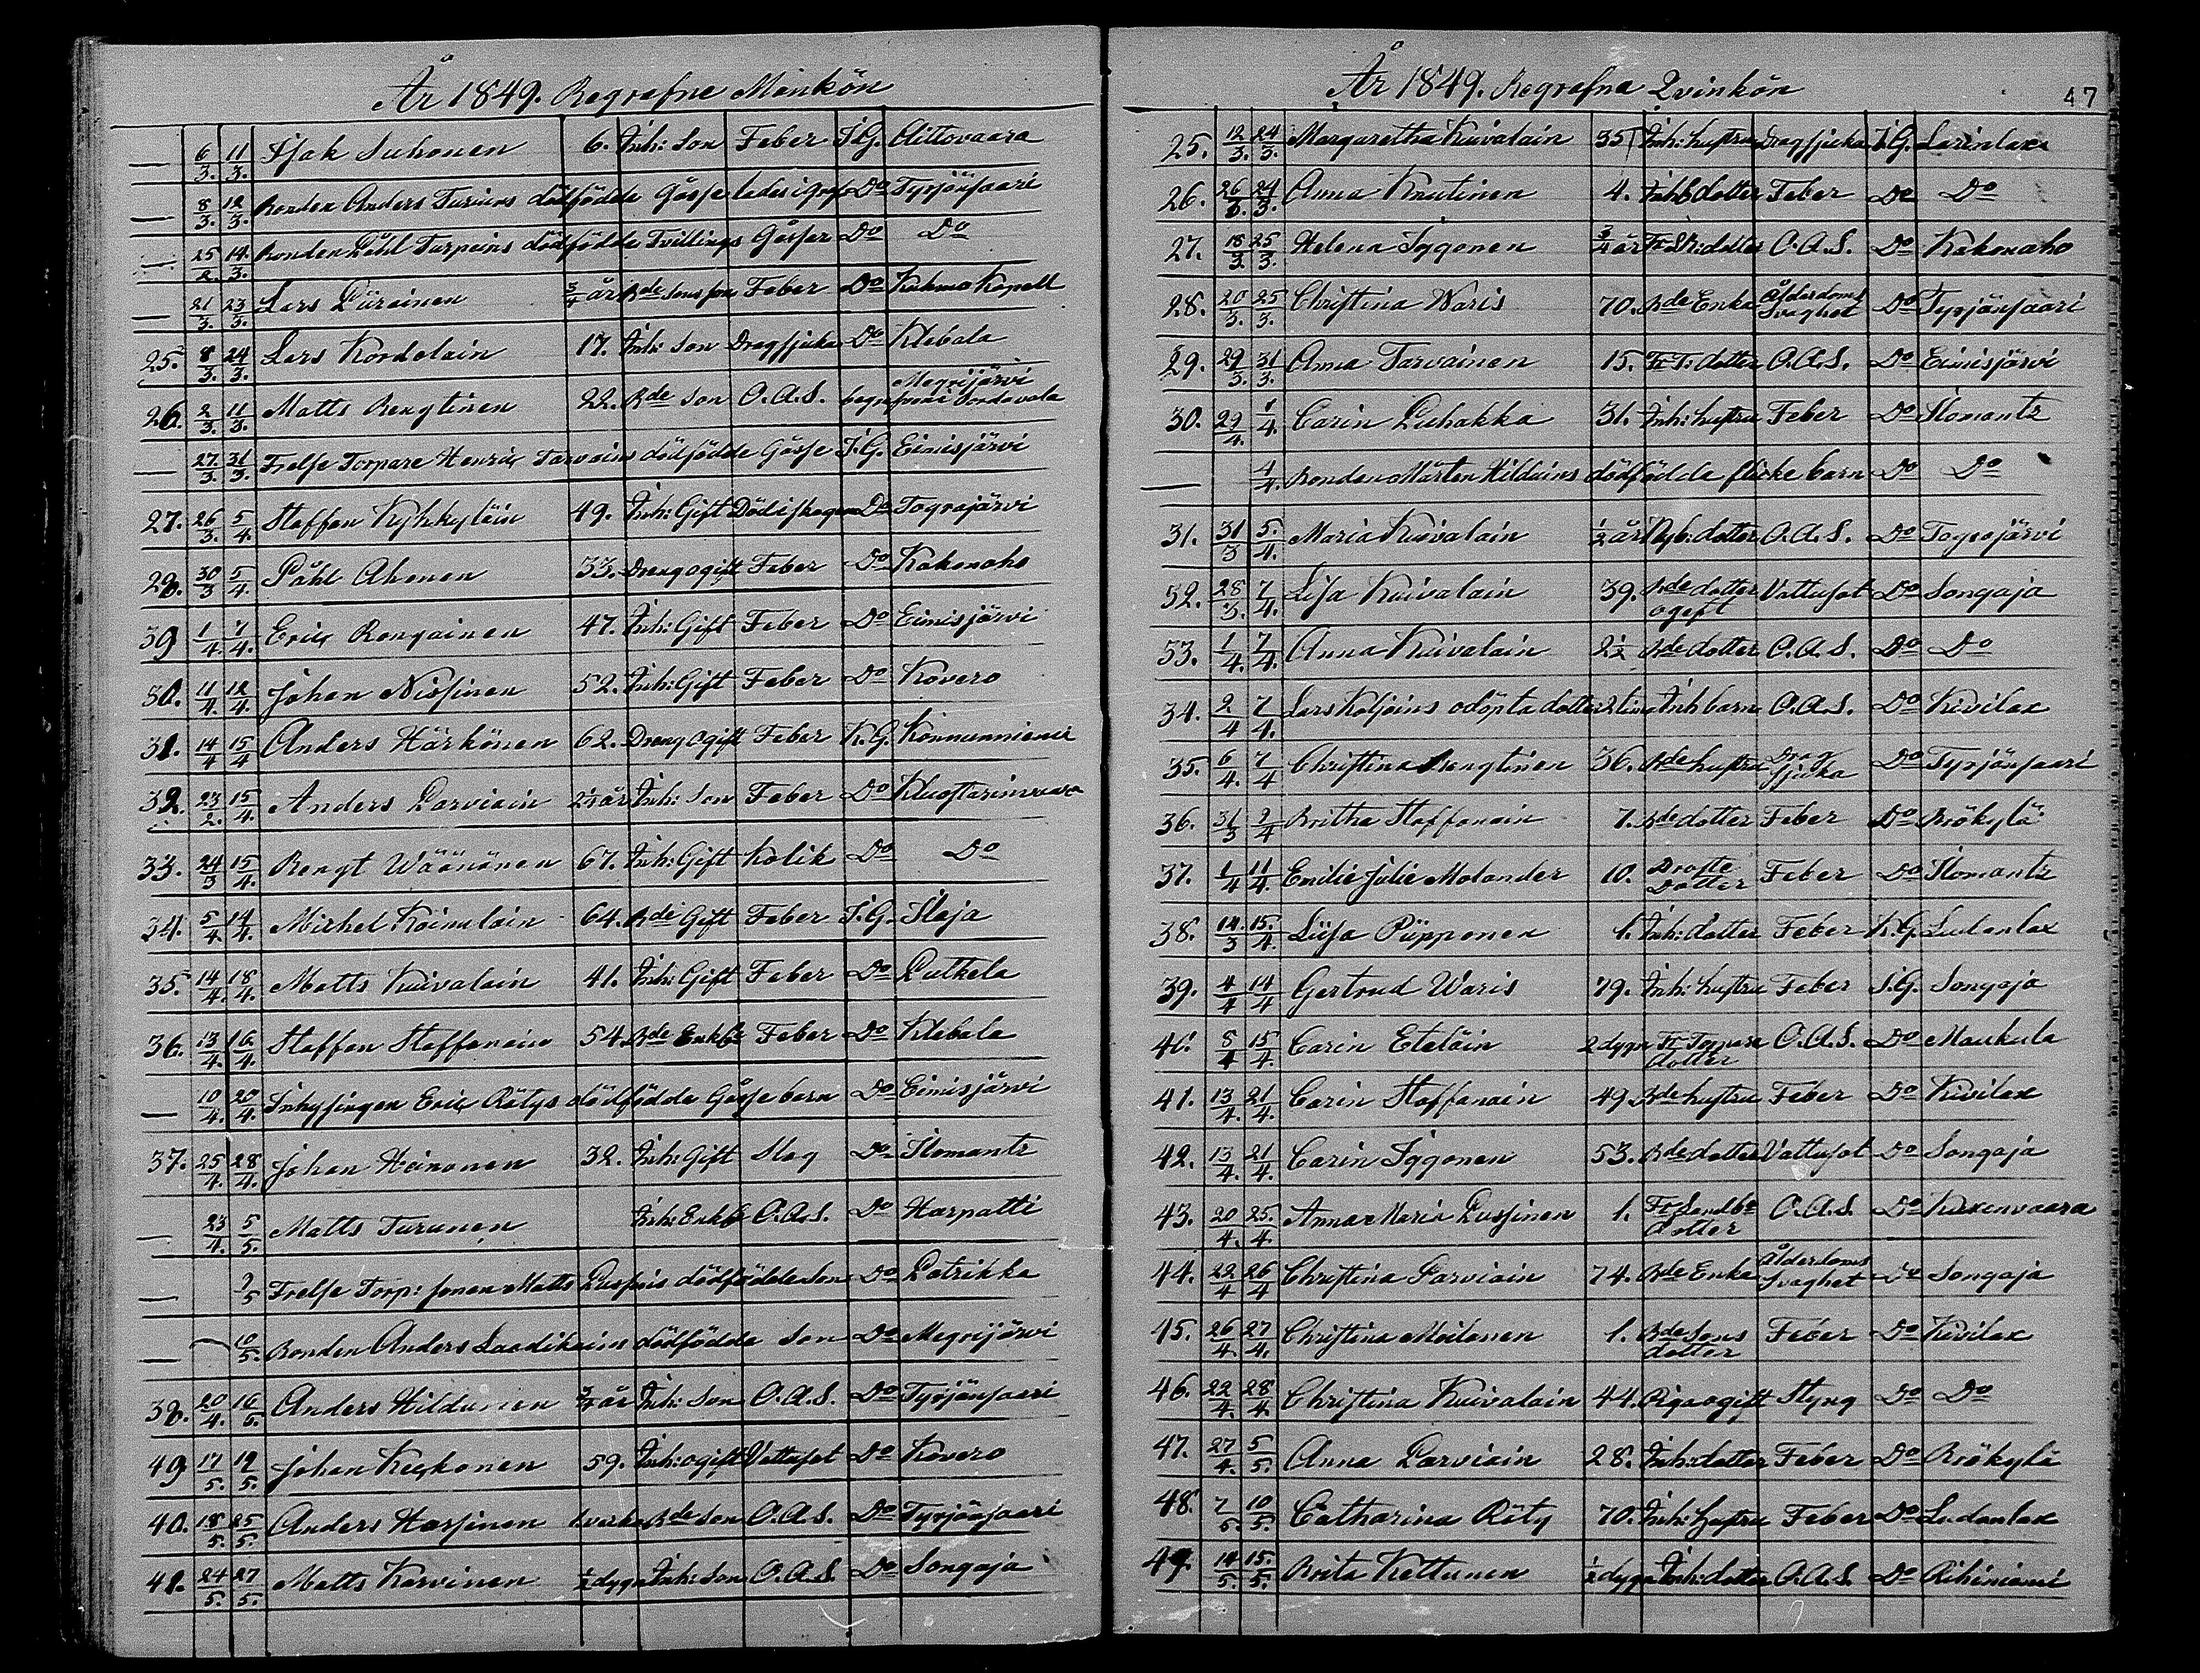 År 1849. Begrafne Mankön
— 6/3. 11/3. Isak Suhonen 6. Inh: Son Feber I.G. Aittovaara
— 8/3. 12/3. Bonden Anders Turuns dödfödde Gosse lades i graf Do Tyrjänsaari
— 25/2. 14/3. Bonden Påhl Turpeins dödfödde Tvillings Gossar Do Do
— 21/3. 23/3. Lars Piirainen 3/4 år Bde Sons son Feber Do Kuhmo Kapell
25. 8/3. 24/3. Lars Kordelain 17. Inh: Son Dragsjuka Do Klebala
26. 2/3. 11/3. Matts Bengtinen 22. Bde Son O.A.S. Megrijärvi
begrafven i Sordavala
— 27/3. 31/3. Frelse Torpare Henric Tarvains dödfödde Gosse I.G. Eimisjärvi
27. 26/3. 5/4. Staffan Kykkyläin 49. Inh: Gift Död i skogen Do Tograjärvi
28. 30/3 5/4 Påhl Ahonen 33. Dreng ogift Feber Do Kakonaho
39 1/4 7/4. Eric Rongainen 47. Inh: Gift Feber Do Eimisjärvi
30. 11/4. 12/4. Johan Nissinen 52. Inh: Gift Feber Do Kovero
31. 14/4 15/4 Anders Härkönen 62. Dreng ogift Feber K.G. Konnunniemi
32. 23/2. 15/4. Anders Parviain 2 1/4 år Inh: Son Feber Do Kluostarinvaara
33. 24/3 15/4. Bengt Wäänänen 67. Inh: Gift Kolik Do Do
34. 5/4. 14/4. Michel Koinulain 64. Bde Gift Feber I.G. Ilaja
35. 14/4. 18/4. Matts Kuivalain 41. Inh: Gift Feber Do Putkela
36. 13/4. 16/4. Staffan Staffanain 54. Bde Enkl Feber Do Klebala
— 10/4. 20/4. Inhysingen Eric Rätys dödfödda Gosse barn Do Eimisjärvi
37. 25/4. 28/4. Johan Heinonen 32. Inh: Gift Slag Do Ilomants
— 23/4. 5/5. Matts Turunen Inh: Enkl O.A.S. Do Harpatti
— 9/5 Frelse Torp: sonen Matts Puspois dödfödde Son Do Patrikka
— 10/5. Bonden Anders Laadikains dödfödde Son Do Megrijärvi
38. 20/4. 16/5. Anders Hildunen 3/4 år Inh: Son O.A.S. Do Tyrjänsaari
49 17/5. 19/5. Johan Kuckonen 59. Inh: ogift Vattusot Do Kovero
40. 18/5. 25/5. Anders Hassinen 1 vecka Bde Son O.A.S. Do Tyrjänsaari
41. 24/5. 27/5. Matts Karvinen 1/2 dygn Inh: Son O.A.S. Do Songaja
År 1849. Begrafna Qvinkön 47
25. 12/3. 24/3. Margaretha Kuivalain 35 Inh: hustru Dragsjuka I.G. Larinlax
26. 26/3. 24/3. Anna Knutinen 4. Inh: dotter Feber Do Do
27. 18/3 25/3. Helena Iggonen 3/4 år Fr: dotter O.A.S. Do Kakonaho
28. 20/3. 25/3. Christina Waris 70. Bde Enka Ålderdoms Svaghet Do Tyrjänsaari
29. 29/3. 31/3. Anna Tarvainen 15. Fr T: dotter O.A.S. Do Eimisjärvi
30. 29/4. 1/4. Carin Puhakka 31. Inh: hustru Feber Do Ilomants
— 4/4. Bonden Mårten Hilduins dödfödda flicke barn Do Do
31. 31/3 5/4. Maria Kuivalain 1/2 år Nyb: dotter O.A.S. Do Tograjärvi
32. 28/3. 7/4. Lisa Kuivalain 39. Bde dotter ogift Vattusot Do Songaja
33. 1/4. 7/4. Anna Kuivalain 2 1/2 Bde dotter O.A.S. Do Do
34. 2/4 7/4. Lars Koljoins odöpta dotter 2 tim Inh barn O.A.S. Do Kivilax
35. 6/4. 7/4 Christina Bengtinen 36. Bde hustru Drag sjuka Do Tyrjänsaari
36. 31/3 9/4 Britha Staffanain 7. Bde dotter Feber Do Brökylä
37. 1/4 11/4. Emilie Julie Molander 10. Probste Dotter Feber Do Ilomants
38. 14/3 15/4. Liisa Piipponen 1. Inh: dotter Feber K.G. Ludanlax
39. 4/4 14/4 Gertrud Waris 79. Inh: hustru Feber I.G. Songaja
40. 8/4 15/4. Carin Eteläin 2 dygn Fr: Torpare dotter O.A.S. Do Maukula
41. 13/4. 21/4. Carin Staffanain 49. Bde hustru Feber Do Kivilax
42. 13/4. 21/4. Carin Iggonen 53. Bde dotter Vattusot Do Songaja
43. 20/4. 25/4. Anna Maria Pussinen 1. Fr Landbo dotter O.A.S. Do Kuxenvaara
44. 22/4 26/4 Christina Parviain 74. Bde Enka Ålderdoms Svaghet Do Songaja
45. 26/4. 27/4. Christina Moilanen 1. Bde Sons dotter Feber Do Kivilax
46. 22/4. 28/4. Christina Kuivalain 44. Piga ogift Styng Do Do
47. 27/4. 5/5. Anna Parviain 28. Inh: dotter Feber Do Brökylä
48. 7/5. 10/5. Catharina Räty 70. Inh: hustru Feber Do Ludanlax
49. 14/5. 15/5. Brita Kettunen 1/2 dygn Inh: dotter O.A.S. Do Riihiniemi